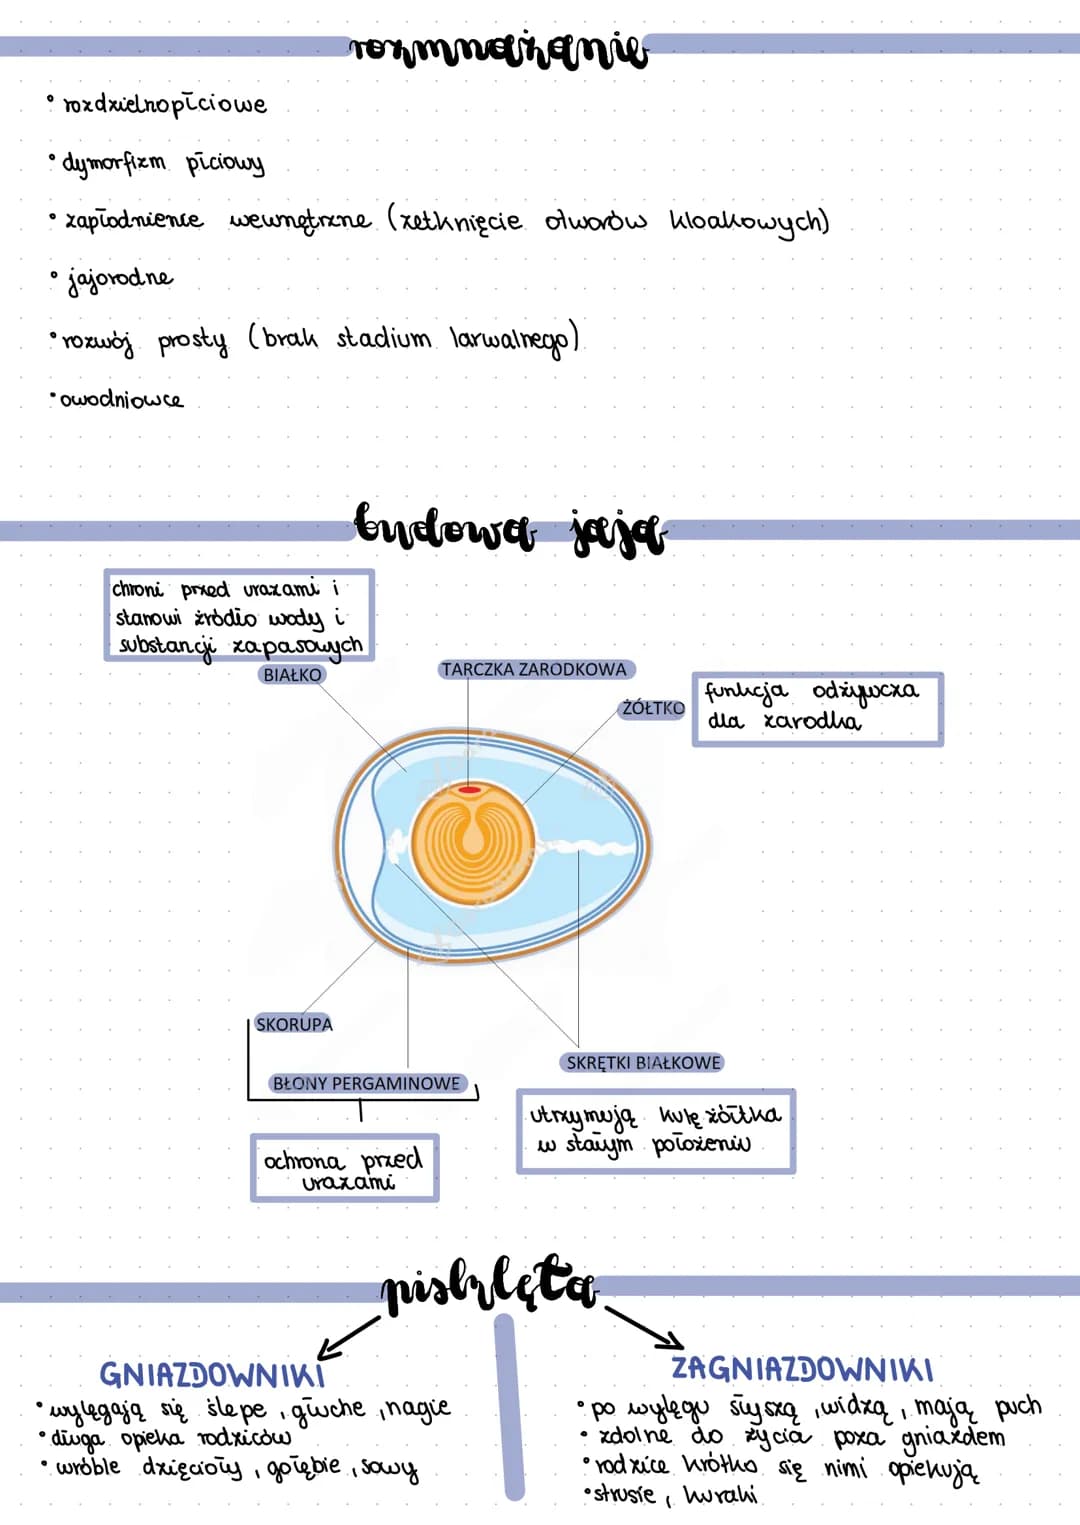 rozmnażanie
• rozdzielnopłciowe
• dymorfizm płciowy
• zapłodnience wewnętrzne (zetknięcie otworów kloakowych)
• jajorodne
• rozwój prosty (brak stadium larwalnego)
• owodniowce
budowa jaja
chroni przed urazami i
stanowi źródło wody i
substancji zapasowych
BIAŁKO
TARCZKA ZARODKOWA
ŻÓŁTKO
funkcja odżywcza
dla zarodka
SKORUPA
BŁONY PERGAMINOWE
ochrona przed
urazami
SKRĘTKI BIAŁKOWE
utrzymują kulę żółtka
w stałym położeniu
pisklęta
GNIAZDOWNIKI
• wylęgają się ślepe, głuche, nagie
• długa opieka rodziców
• wróble dzięcioły, gołębie, sowy
ZAGNIAZDOWNIKI
• po wylęgu słyszą, widzą, mają puch
• zdolne do życia poza gniazdem
• rodzice krótko się nimi opiekują
• strusie, kuraki